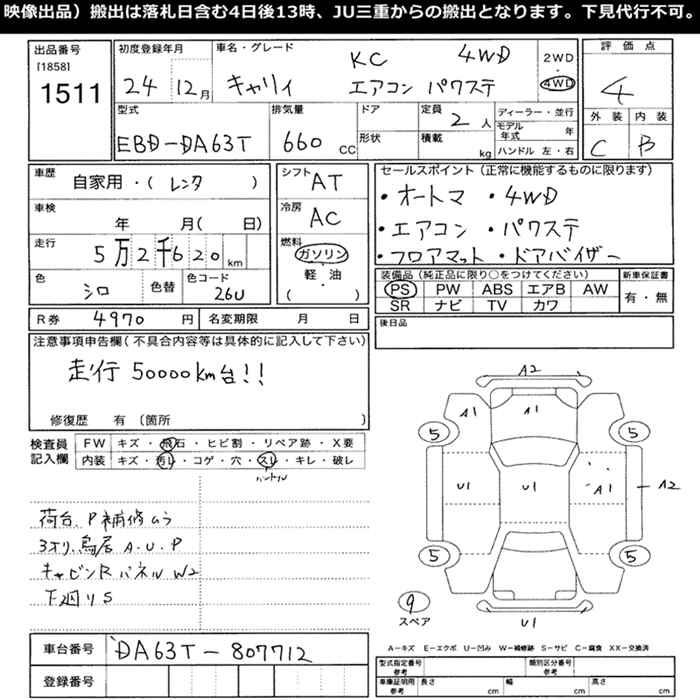 映像出品）搬出は落札日含む4日後13時、JU三重からの搬出となります。下見代行不可。
出品番号
[1858]
1511
初度登録年月
24 12月
車名・グレード
KC 4WD
キャリイ エアコン パワステ
2WD
・
4WD
評価点
4
外装 内装
C B
型式
EBD-DA63T
排気量
660 CC
ドア
形状
定員
2人
積載
kg
ディーラー・並行
モデル年式 年
ハンドル 左・右
車歴
自家用・( レンタ )
車検
年 月( 日)
走行
5万2千620 km
色
シロ
色替
色コード
26U
シフト
AT
冷房
AC
燃料
ガソリン
軽・油
( ・ )
セールスポイント（正常に機能するものに限ります）
・オートマ ・4WD
・エアコン ・パワステ
・フロアマット・ドアバイザー
装備品（純正品に限り○をつけてください）
PS PW ABS エアB AW
SR ナビ TV カワ
新車保証書
有・無
R券 4970 円
名変期限 月 日
後日品
注意事項申告欄(不具合内容等は具体的に記入して下さい)
走行 50000km台!!
修復歴 有 〔箇所 〕
検査員
記入欄
FW キズ・飛石・ヒビ割・リペア跡・X要
内装 キズ・汚レ・コゲ・穴・スレ・キレ・破レ
ハンドル
荷台、P補修ムラ
3オリ、鳥居 A.U.P
キャビンRパネル W2
下廻りS
A2
A1 A1
5 5
U1 U1 A1 A2
5 5
9
スペア
U1
A－キズ E－エクボ U－凹み W－補修跡 S－サビ C－腐食 XX－交換済
車台番号 DA63T-807712
登録番号
型式指定番号
参考
類別区分番号
参考
車庫証明用
参考
長さ cm 幅 cm 高さ cm